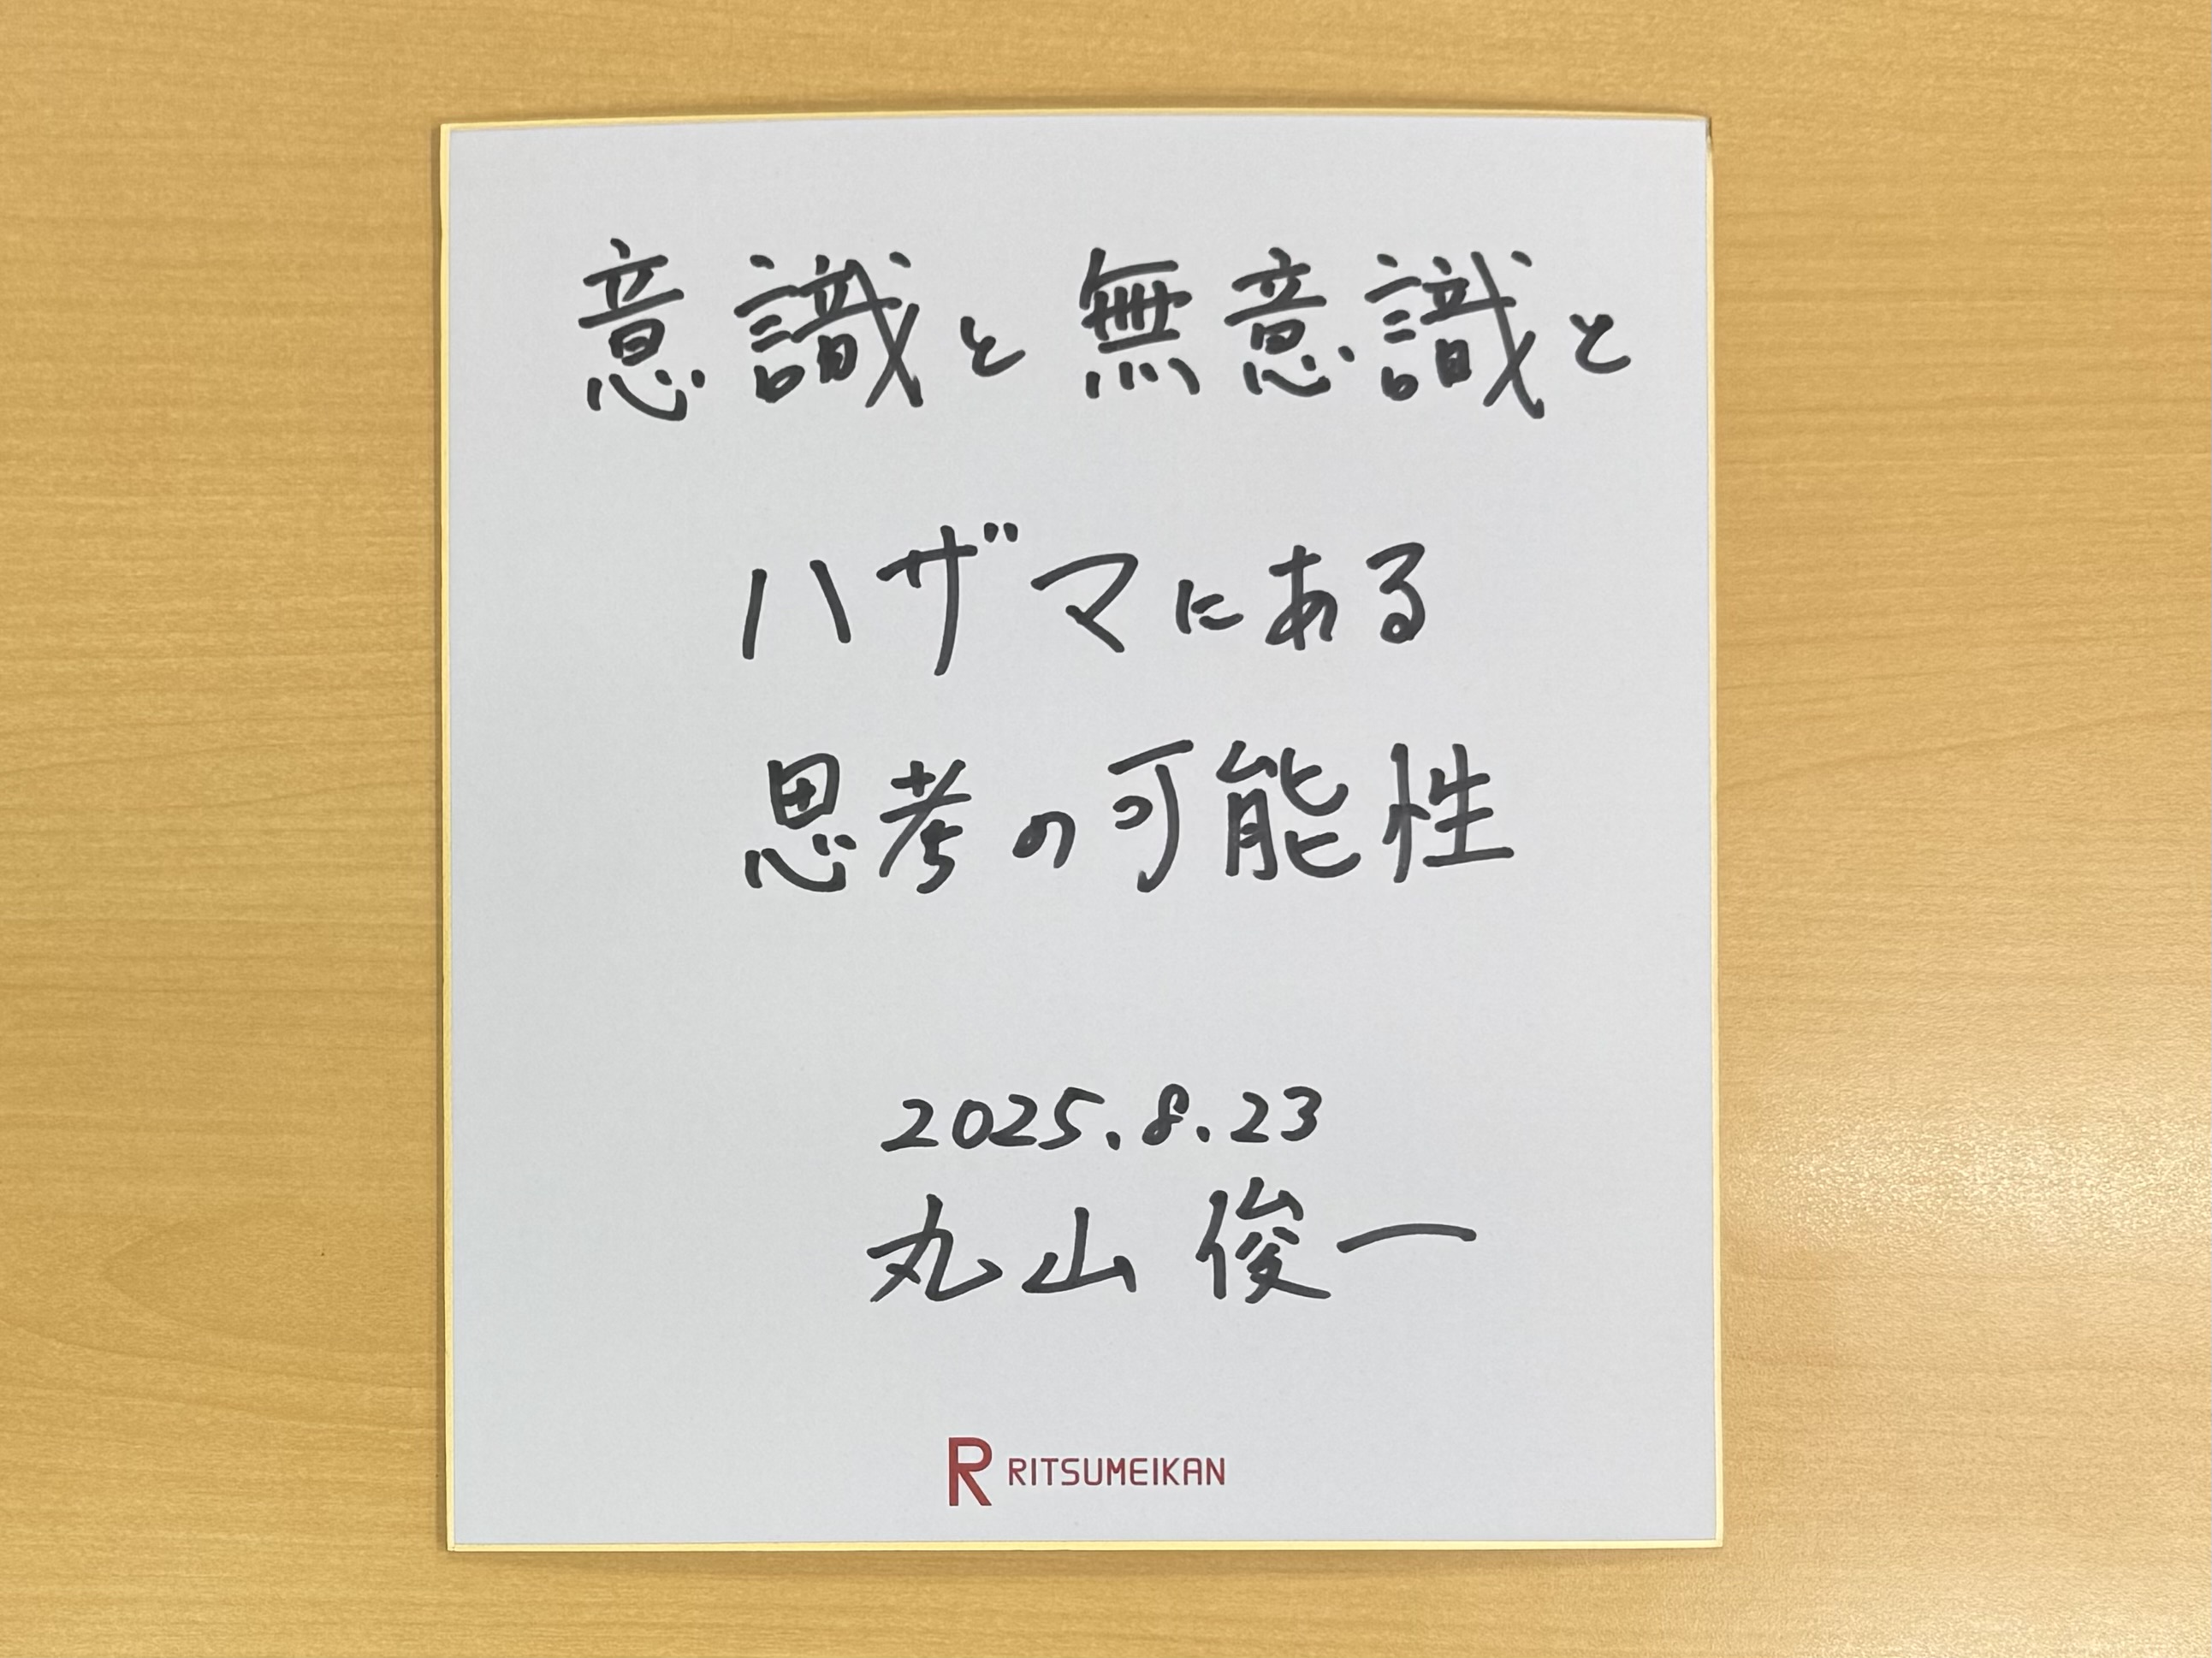 意識と無意識と
ハザマにある
思考の可能性
2025.8.23
丸山 俊一
R RITSUMEIKAN